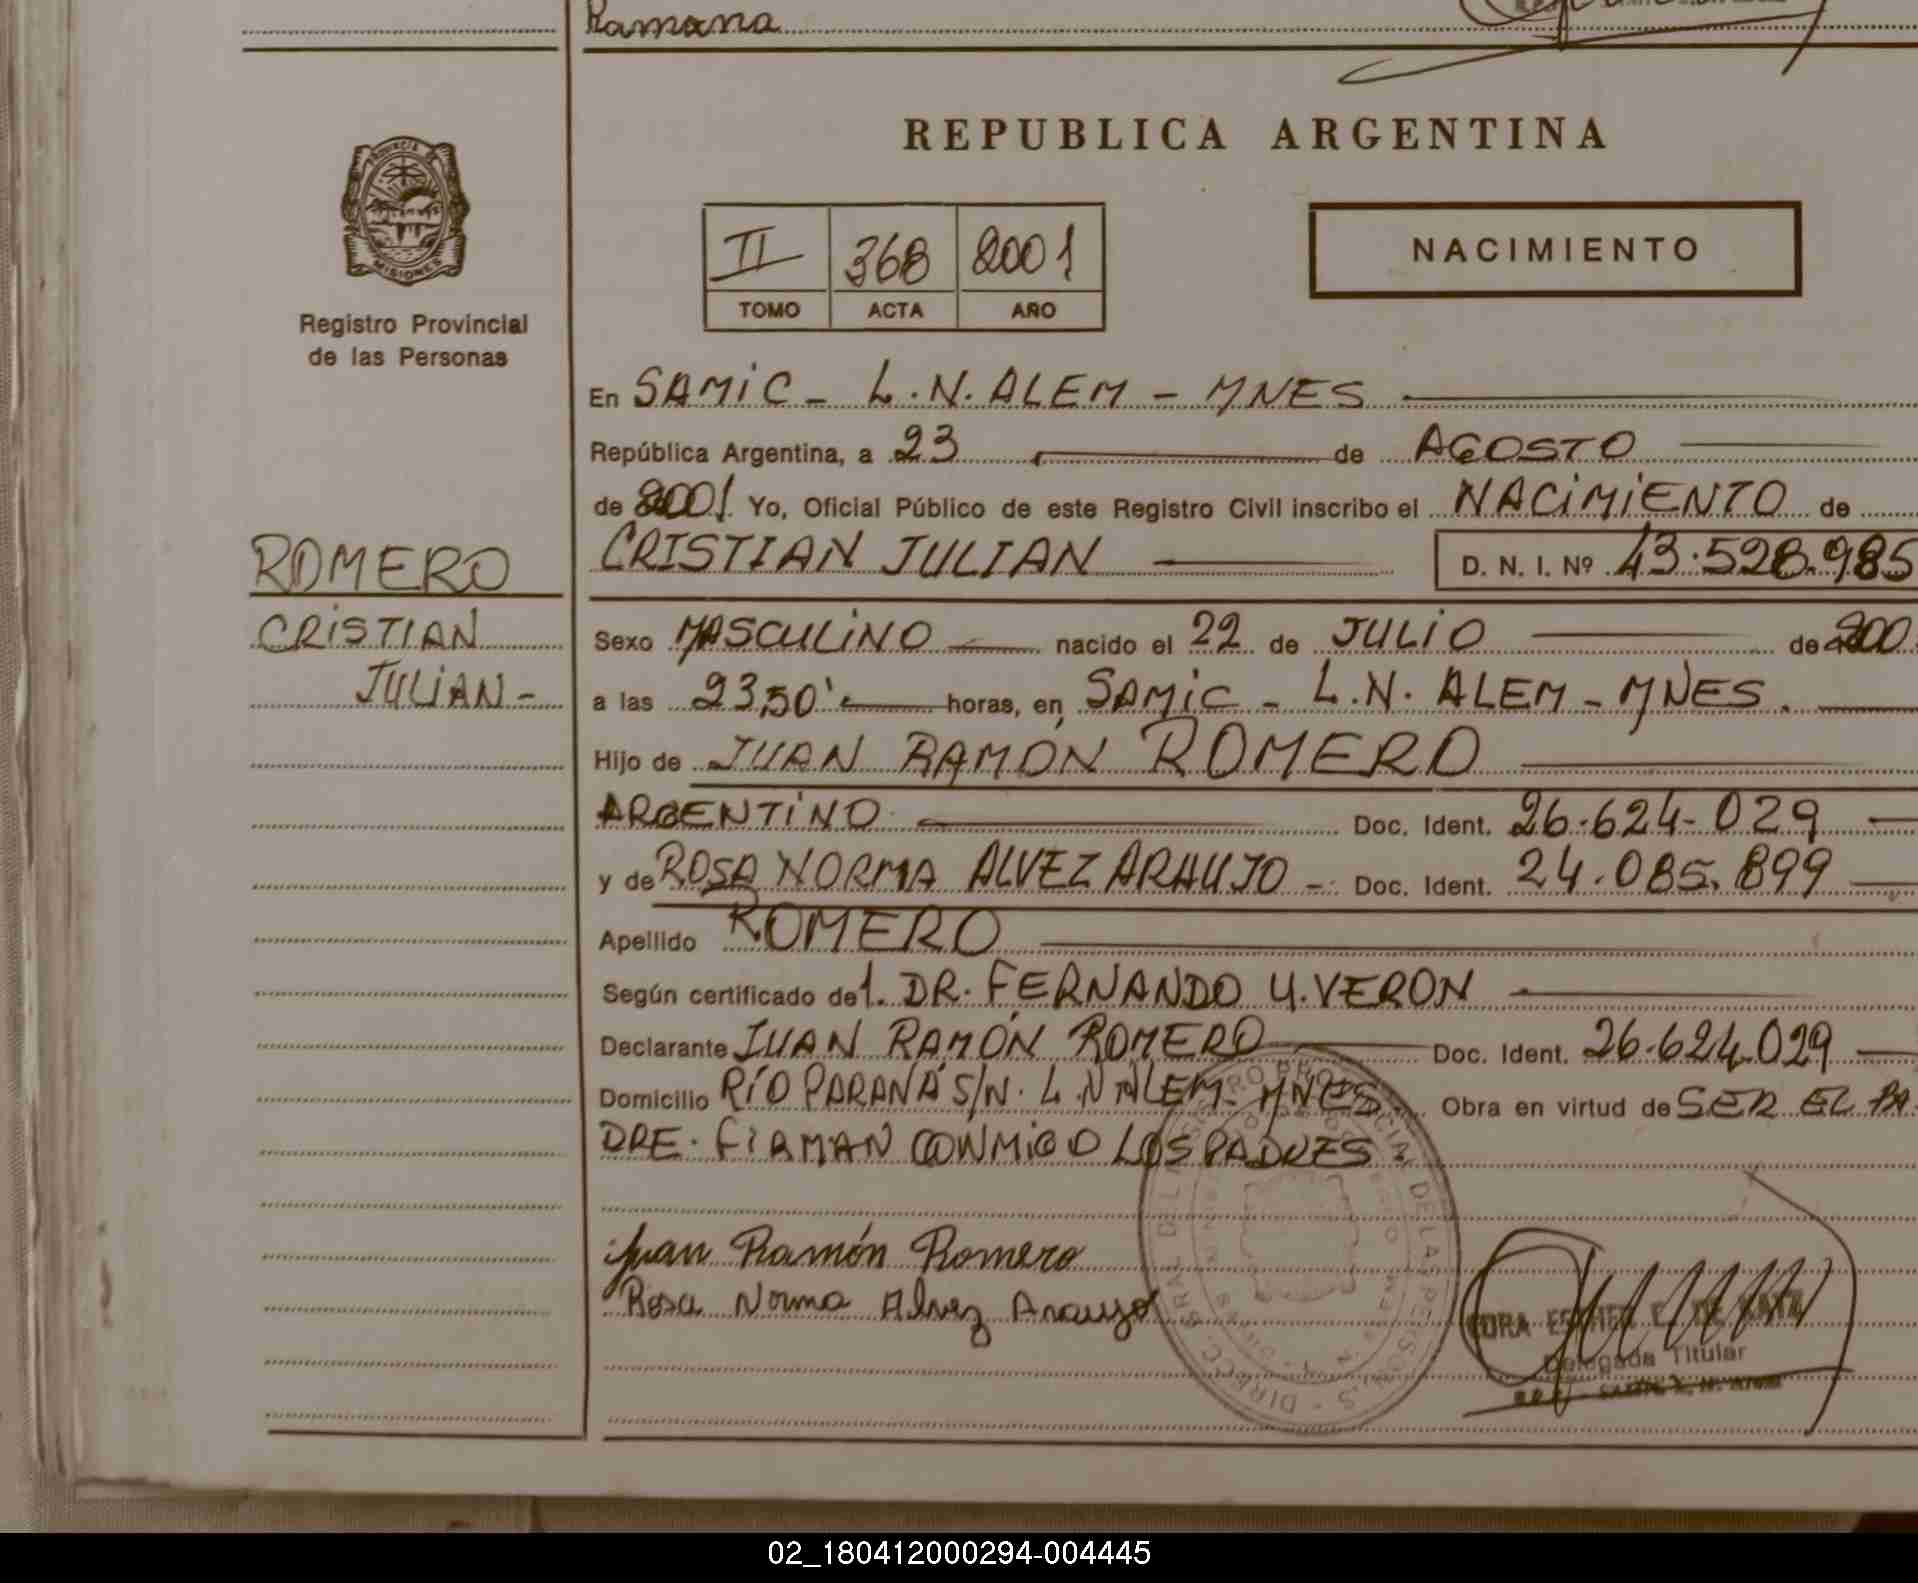 Ramona
REPUBLICA ARGENTINA
PROVINCIA DE
MISIONES
Registro Provincial
de las Personas
II 368 2001
TOMO ACTA AÑO
NACIMIENTO
En SAMIC - L.N. ALEM - MNES
República Argentina, a 23 de AGOSTO
de 2001. Yo, Oficial Público de este Registro Civil inscribo el NACIMIENTO de
CRISTIAN JULIAN D. N. I. Nº 43.528.985
ROMERO
CRISTIAN
JULIAN -
Sexo MASCULINO nacido el 22 de JULIO de 200
a las 23,50' horas, en SAMIC - L.N. ALEM - MNES.
Hijo de JUAN RAMÓN ROMERO
ARGENTINO Doc. Ident. 26.624.029
y de ROSA NORMA ALVEZ ARAUJO - Doc. Ident. 24.085.899
Apellido ROMERO
Según certificado de 1. DR. FERNANDO U. VERON
Declarante JUAN RAMÓN ROMERO Doc. Ident. 26.624.029
Domicilio RÍO PARANÁ S/N. L.N ALEM - MNES. Obra en virtud de SER EL PA-
DRE. FIRMAN CONMIGO LOS PADRES.
Juan Ramón Romero
Rosa Norma Alvez Araujo
Delegada Titular
02_180412000294-004445